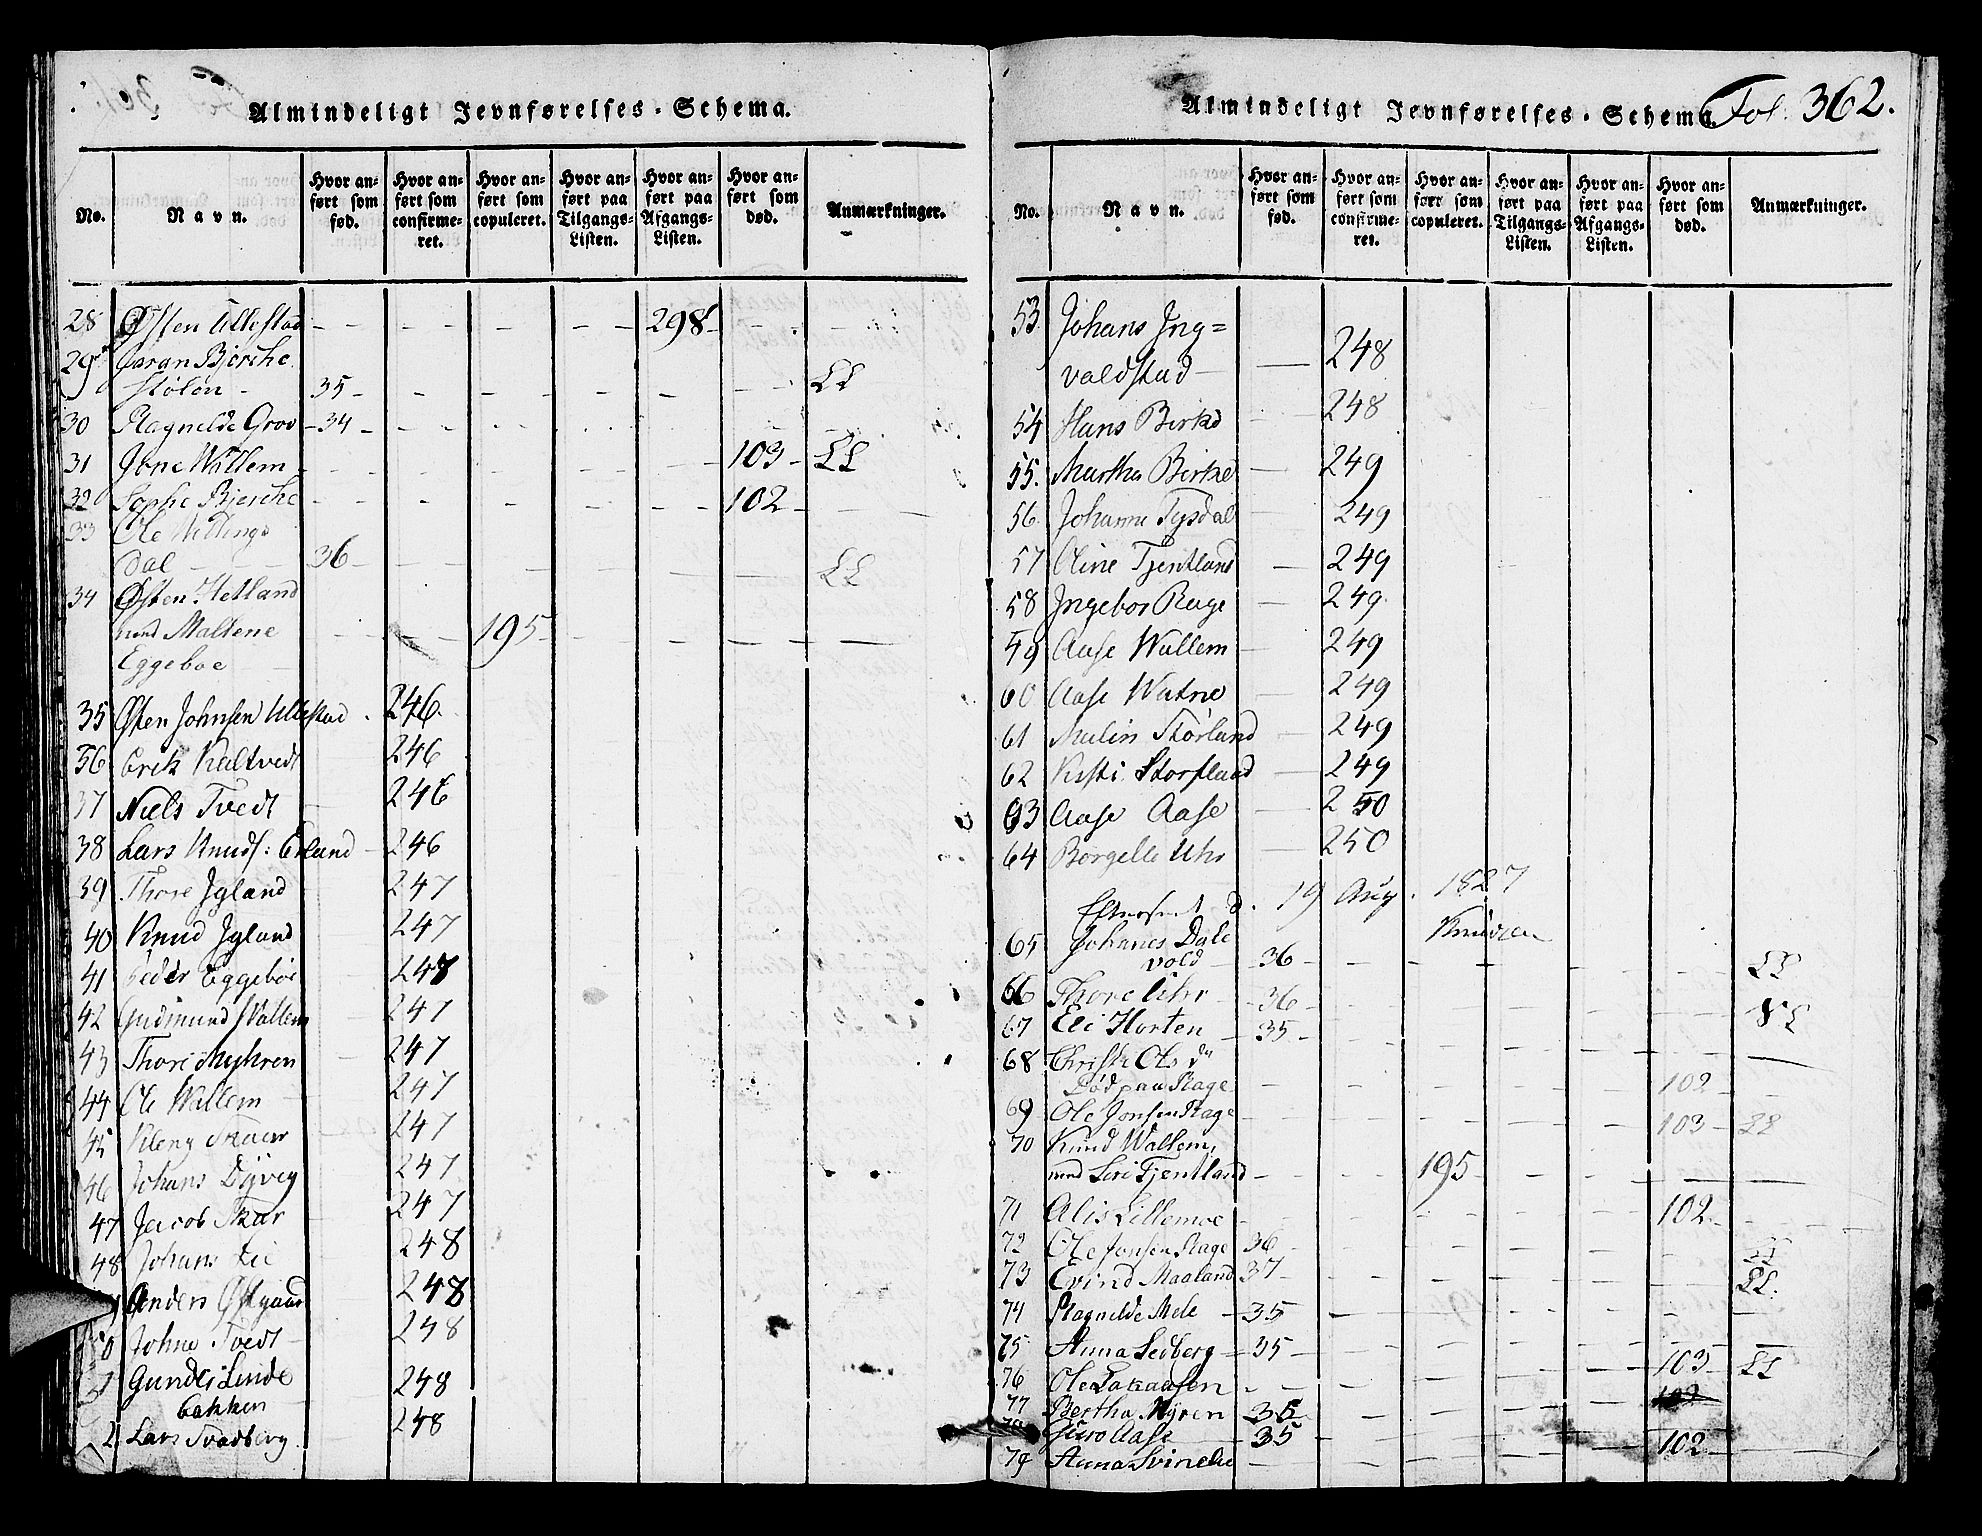 Almindeligt Jevnførelses-Schema.
No.
Navn.
Hvor anført som fød.
Hvor anført som confirmeret.
Hvor anført som copuleret.
Hvor anført paa Tilgangs-Listen.
Hvor anført paa Afgangs-Listen.
Hvor anført som død.
Anmærkninger.
28 Østen Ullestad - - - - 298 - -
29 Joran Bjerche
støløn - 35 - - - - - - LL
30 Ragnilde Grov - 34 - - - -
31 Jone Wallem - - - - - 103 - LL
32 Sophie Bjerche - - - - - 102 -
33 Ole Hettings
dal 36 - - - - - - LL
34 Østen Hetland
med Maltene - - 195 - - - - -
Eggeboe
35 Østen Johnsen Ullestad . 246.
36 Erik Kaltvedt 246
37 Niels Tvedt 246
38 Lars Knuds: Erland - 246
39 Thore Jgland 247
40 Knud Jgland 247
41 Peder Eggebøe 247
42 Gudmund Wallem 247
43 Thore Myhren 247
44 Ole Wallem 247
45 Kleng Skaar 247
46 Johans Dÿveg 247
47 Jacob Skar 247
48 Johans Lie 248
Anders Østgaard 248
0 Johne Tvedt 248
Gunder Linde
bakken 248
2 Lars Svadberg. 248
Almindeligt Jevnførelses-Schema.
Fol. 362.
No.
Navn.
Hvor anført som fød.
Hvor anført som confirmeret.
Hvor anført som copuleret.
Hvor anført paa Tilgangs-Listen.
Hvor anført paa Afgangs-Listen.
Hvor anført som død.
Anmærkninger.
53 Johans Jng=
valdstad - - 248
54 Hans Birke - 248
55. Martha Birke - 249
56 Johanne Tysdal 249
57 Oline Tjentland - 249
58 Jngebor Rage - 249
59 Aase Wallem - 249
60 Aase Watne - 249
61 Malin Størland - 249
62 Kisti Storfland - 249
63 Aase Aase - 250
64 Borgelle Uhr - 250
d. 19 Aug. 1827
Knudsen
65 Johanes Dale
vold - 36 - - - - - - LL
66 Thore Uhr - 36 - - - - - LL
67 Eli Horten - 35 - - - - - -
68 Christi Ols dr
Død paa Rage - - - - - 102 -
69 Ole Jonsen Rage - - - - - 103 - LL
70 Knud Wallem,
med Siri Tjentland - - 195 - - - -
71 Alis Lillemoe - - - - - 102 -
72 Ole Jonsen Rage 36 - - - - - LL
73 Evind Maaland 37 - - - - - LL.
74 Ragnilde Mele - 35 - - - - - -
75 Anna Sedberg - 35 - - - - 103 - LL
76 Ole - - - - -
77 Bertha Myren 35 - - - - -
78 Guro Aase - 35 - - - - 102 -
79 Anna - - - - - -